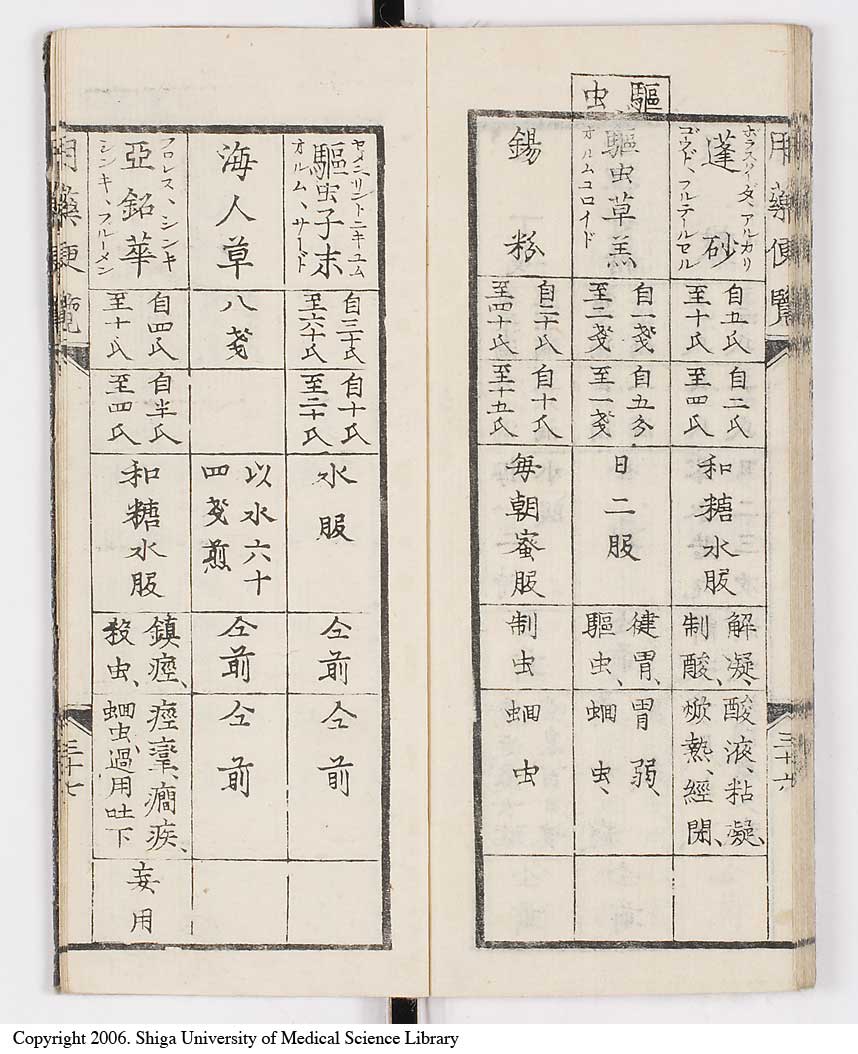 用藥便覽
三十六
蓬砂
自五氏
至十氏
自二氏
至四氏
和糖水服
解凝、
制酸、
酸液、粘凝、
焮熱、經閉、
驅虫
驅虫草羔
オルムコロイド
自一戔
至二戔
自五分
至一戔
日二服
健胃、
驅虫、
胃弱、
蛔虫、
錫粉
自二十氏
至四十氏
自十氏
至十五氏
每朝蜜服
制虫
蛔虫
驅虫子末
オルム、サード
自三十氏
至六十氏
自十氏
至二十氏
水服
仝前
仝前
海人草
八戔
以水六十
四戔煎
仝前
仝前
フロレス、シンキ
亞鉛華
シンキ、フルーメン
自四氏
至十氏
自半氏
至四氏
和糖水服
鎮痙、
殺虫、
痙攣、癇疾、
蛔虫、過用吐下
妄用
用藥便覽
三十七
Copyright 2006. Shiga University of Medical Science Library